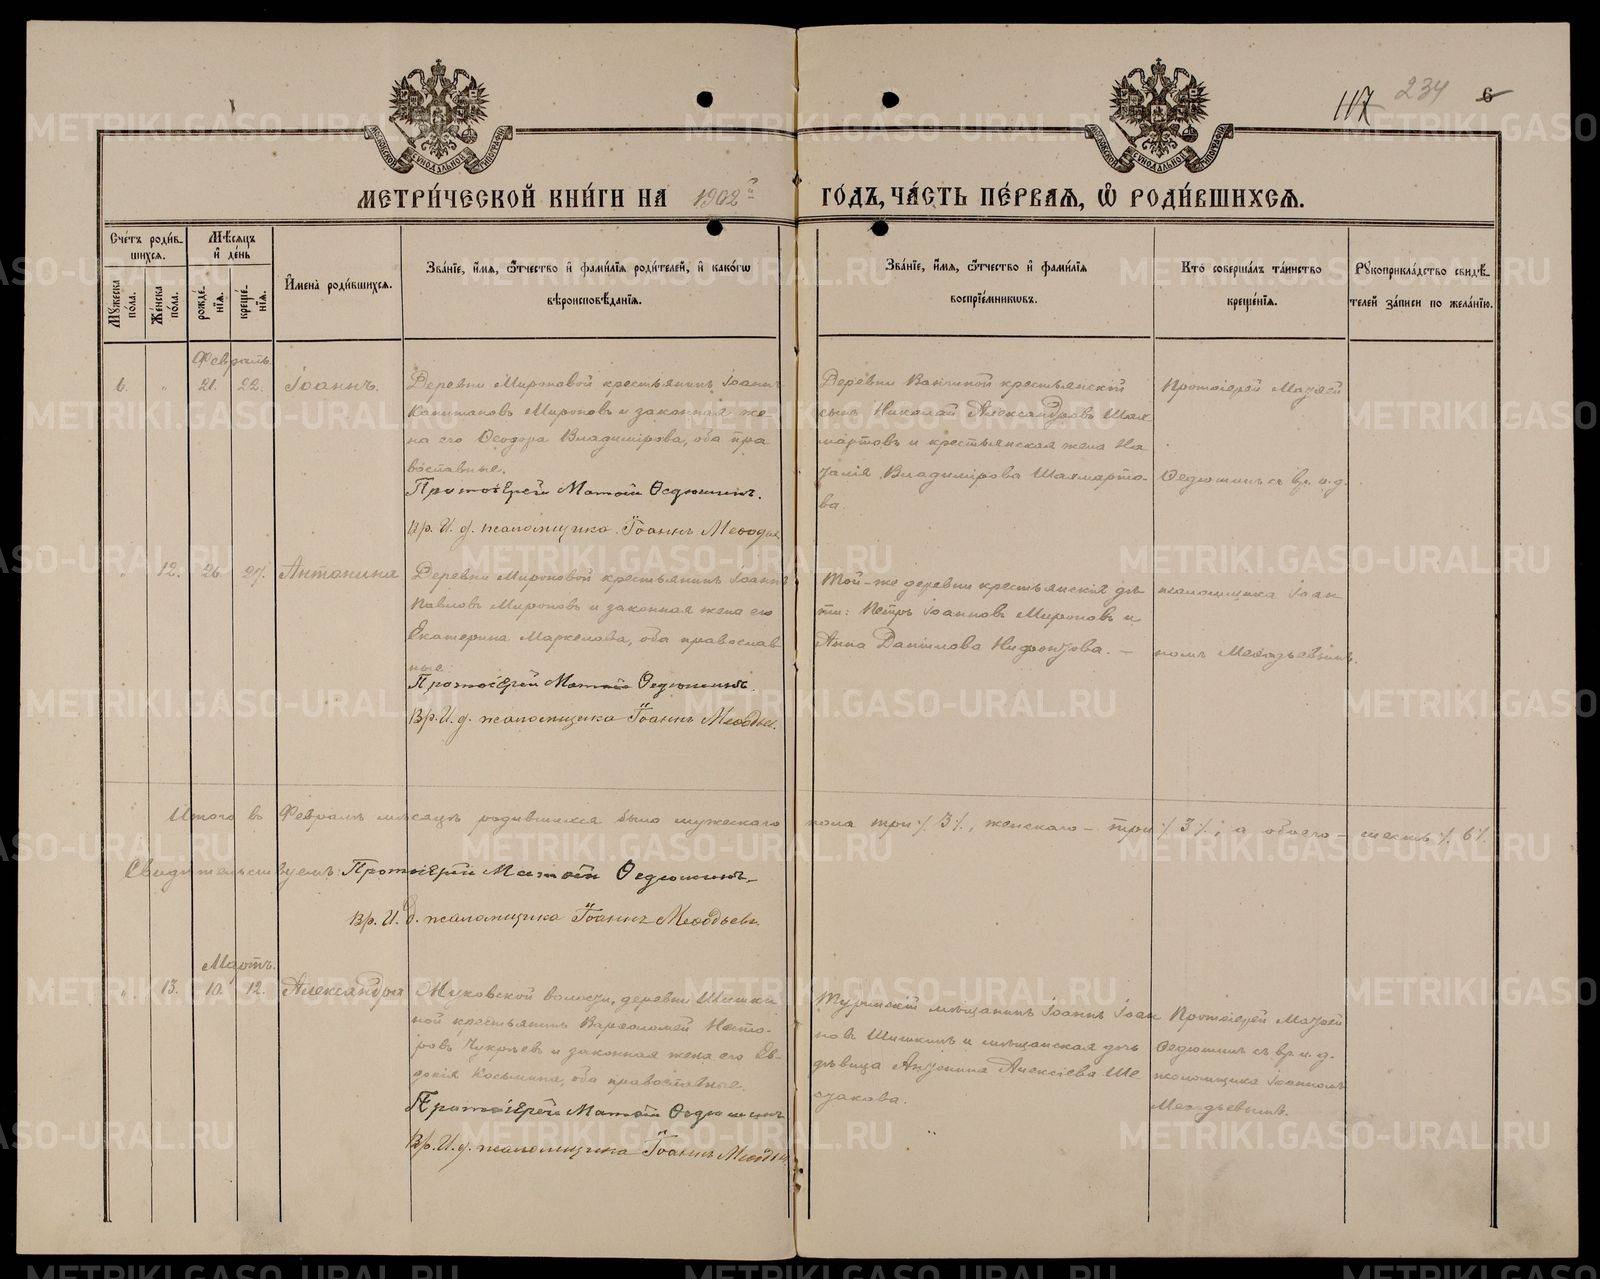 117 234 6
МЕТРИ́ЧЕСКОЙ КНИ́ГИ НА 1902й ГО́ДЪ, ЧА́СТЬ ПЕ́РВАЯ, Ѽ РОДИ́ВШИХСЯ.
Сче́тъ роди́в-
шихся.
Му́жеска по́ла.
Же́нска по́ла.
Мѣ́сяцъ
и де́нь
рожде́-
нїя.
креще́-
нїя.
И҆мена̀ роди́вшихся.
Зва́нїе, и҆́мя, ѻ҆́тчество и҆ фами́лїя роди́телей, и҆ како́гѡ
вѣроисповѣ́данїя.
Зва́нїе, и҆́мя, ѻ҆́тчество и҆ фами́лїя
воспрїе́мникѡвъ.
Кто̀ соверша́лъ та́инство
креще́нїя.
Рукоприкла́дство свидѣ́-
телей за́писи по жела́нїю.
Февраль.
6. " 21. 22. Іоаннъ.
Деревни Мироновой крестьянинъ Іоаннъ
Капитоновъ Мироновъ и законная же-
на его Ѳеодора Владимірова, оба пра
вославные.
Протоіерей Матѳій Ѳедюшинъ.
Вр. И. д. псаломщика Іоаннъ
крестьянскій
сынъ Николай Александровъ Шах
мартовъ и крестьянская жена На
талія Владимірова Шахмарто-
ва.
Протоіерей Матѳей
Ѳедюшинъ съ вр. и. д.
" 12. 26. 27. Антонина
Деревни Мироновой крестьянинъ Іоаннъ
Павловъ Мироновъ и законная жена его
Екатерина Маркелова, оба православ
ные.
Протоіерей Матѳій Ѳедюшинъ.
Вр. И. д. псаломщика Іоаннъ
Той-же деревни крестьянскія дѣ
ти: Петръ Іоанновъ Мироновъ и
Анна Данилова Нифонтова. —
псаломщика Іоан
номъ Меѳодьевымъ.
Итого въ Февралѣ мѣсяцѣ родившихся было мужескаго пола три ⁒ 3 ⁒, женскаго — три ⁒ 3 ⁒, а обоего — шесть ⁒ 6 ⁒.
Свидѣтельствуемъ: Протоіерей Матѳій Ѳедюшинъ,
Вр. И. д. псаломщика Іоаннъ Меѳодьевъ.
Мартъ.
" 13. 10. 12. Александра
волости, деревни Шишки
ной крестьянинъ Варѳоломей Несто-
ровъ и законная жена его Ев-
докія Косьмина, оба православные.
Протоіерей Матѳій Ѳедюшинъ
Вр. И. д. псаломщика Іоаннъ
Туринскій мѣщанинъ Іоаннъ Іоан
новъ Шишкинъ и мѣщанская дочь
дѣвица Антонина Алексіева Ше
стакова.
Протоіерей Матѳей
Ѳедюшинъ съ вр. и. д.
псаломщика Іоанномъ
Меѳодьевымъ.
METRIKI.GASO-URAL.RU